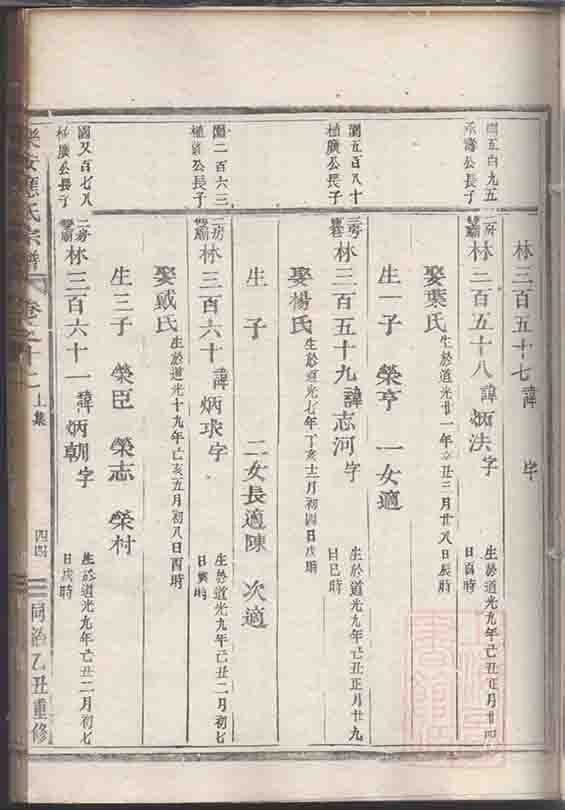 林三百五十七 諱 字
閏五百九五
長子
二房
林三百五十八 諱炳法 字
生於道光九年己丑正月廿四
日酉時
娶葉氏 生於道光廿一年辛丑三月廿八日辰時
生一子 榮亨 一女適
閏五百八十
植廣公長子
三房
林三百五十九 諱志河 字
生於道光九年己丑正月廿九
日巳時
娶楊氏 生於道光七年丁亥十二月初四日戌時
生 子 二女長適陳 次適
閏二百六三
公長子
二房
林三百六十 諱炳求 字
生於道光九年己丑二月初七
日寅時
娶戚氏 生於道光十九年己亥五月初八日酉時
生三子 榮臣 榮志 榮村
閏又百七八
植廣公長子
二房
林三百六十一 諱炳朝 字
生於道光九年己丑二月初七
日戌時
樂安應氏宗譜 卷之十七 上集 四四 同治乙丑重修